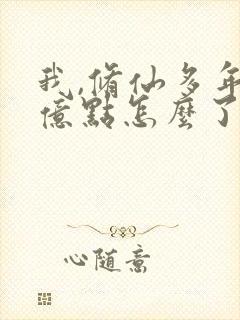 我,脩仙多年
億點怎麼了
心随意